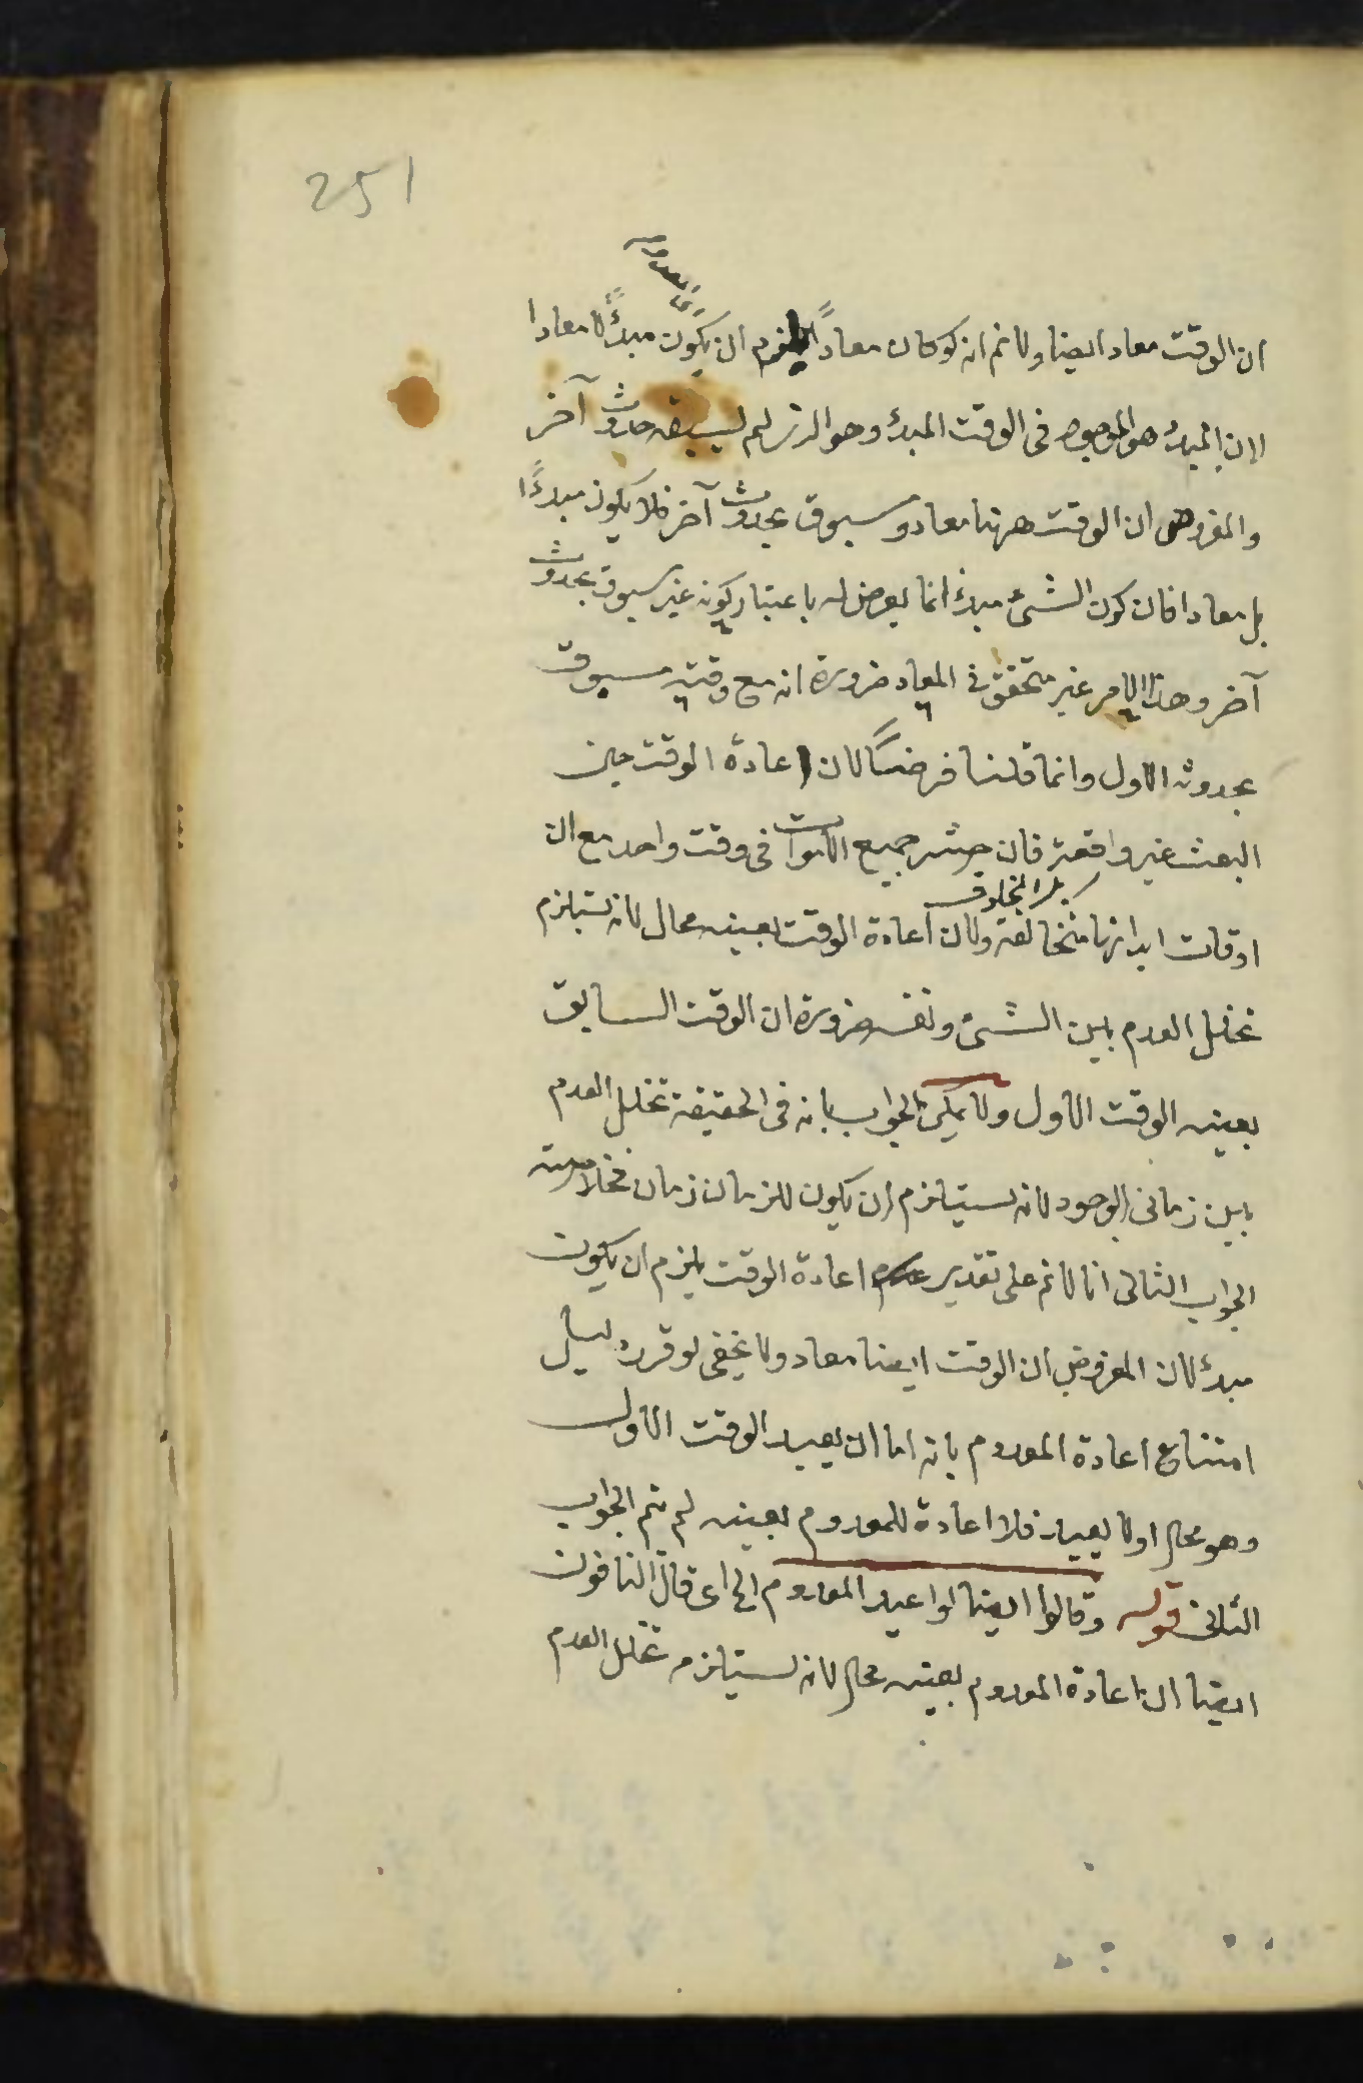 251
ان الوقت معاد ايضا ولا نم انه لو كان معاداً يلزم ان يكون مبدءً لا معادا
لان المبدء هو الموجود فى الوقت المبدء وهو الذى لم يسبقه حدوث آخر
والمفروض ان الوقت ههنا معاد ومسبوق بحدوث آخر فلا يكون مبدءًا
بل معادا فان كون الشىء مبدء انما يعرض له باعتبار كونه غير مسبوق بحدوث
آخر وهذا الامر غير متحقق فى المعاد ضرورة انه مع وقته مسبوق
بحدوثه الاول وانما قلنا فرضًا لان اعادة الوقت حين
البعث غير واقعة فان حشر جميع الاموات فى وقت واحد مع ان
اوقات ابدانها متخالفة ولان اعادة الوقت بعينه محال لانه يستلزم
تخلل العدم بين الشىء ونفسه ضرورة ان الوقت السابق
بعينه الوقت الاول ولا يمكن الجواب بانه فى الحقيقة تخلل العدم
بين زمانى الوجود لانه يستلزم ان يكون للزمان زمان فخلاصة
الجواب الثانى انا لا نم على تقدير عدم اعادة الوقت يلزم ان يكون
مبدء لان المفروض ان الوقت ايضا معاد ولا يخفى لو قرر دليل
امتناع اعادة المعدوم بانه اما ان يعيد الوقت الاول
وهو محال او لا يعيد فلا اعادة للمعدوم بعينه لم يتم الجواب
الثانى قوله وقالوا ايضا لو اعيد المعدوم الخ اى قال النافون
ايضا ان اعادة المعدوم بعينه محال لانه يستلزم تخلل العدم